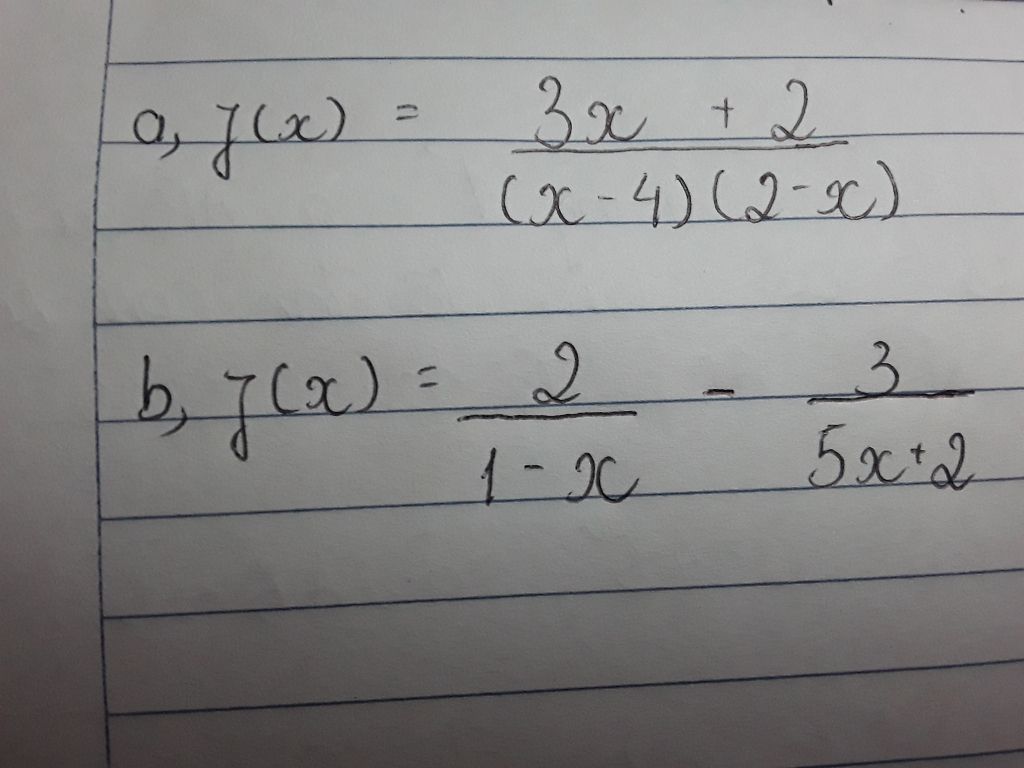 a, f(x) = \frac{3x + 2}{(x - 4)(2 - x)}
b, f(x) = \frac{2}{1 - x} - \frac{3}{5x + 2}